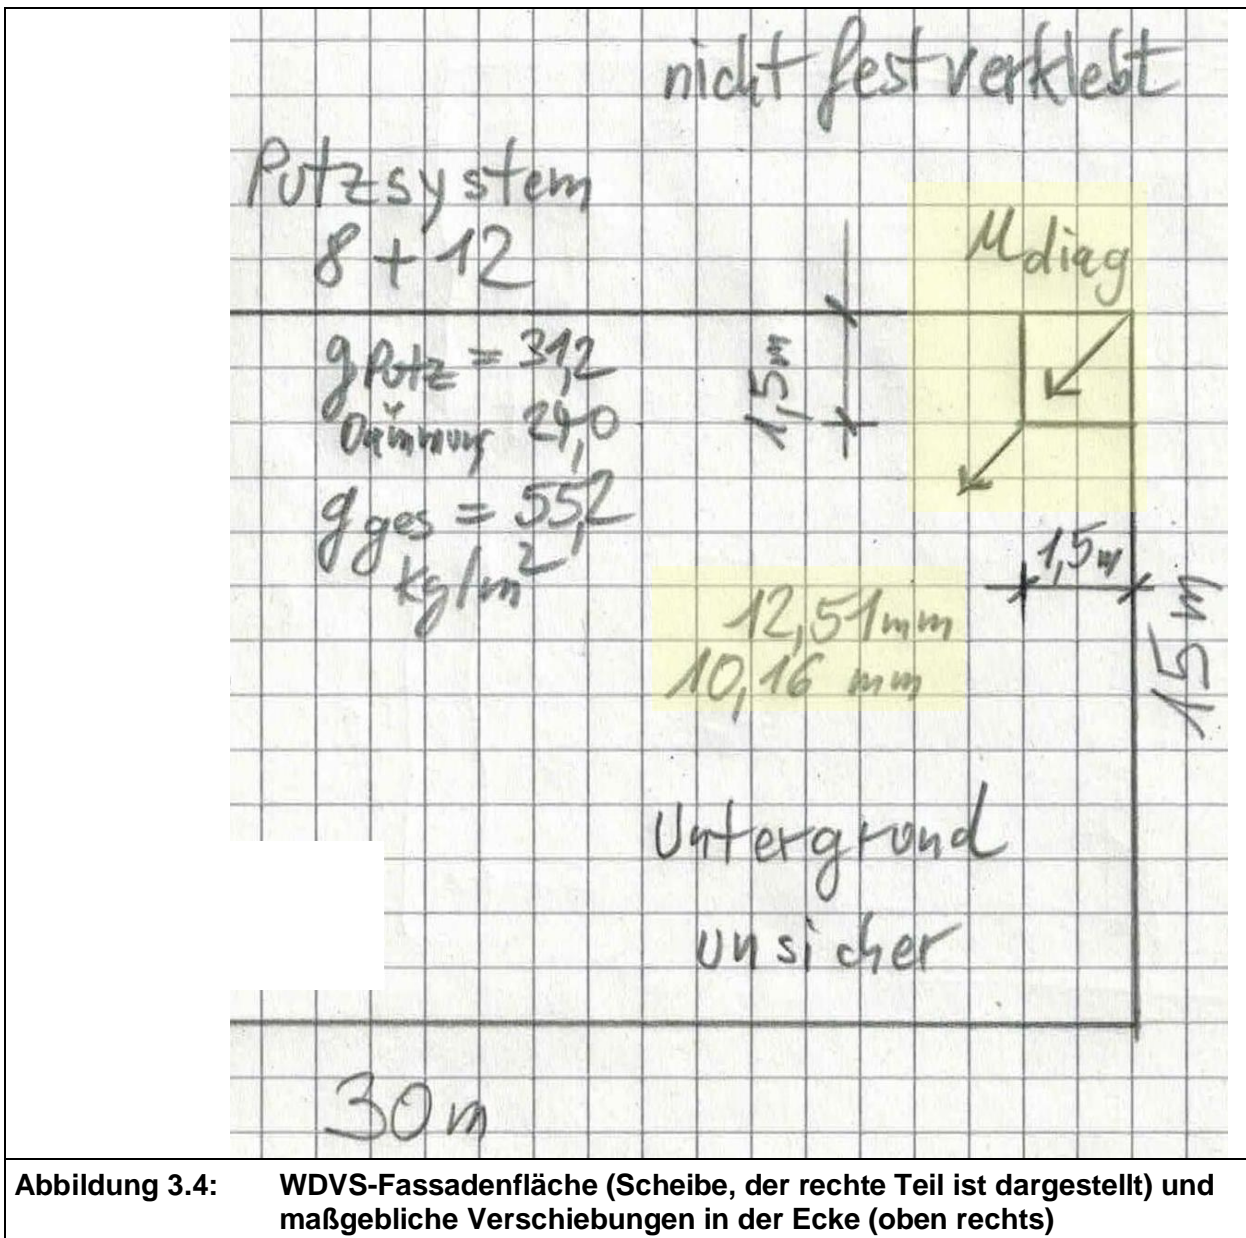 nicht fest verklebt
Putzsystem
8 + 12
u diag
g Putz = 31,2
Dämmung 24,0
g ges = 55,2
kg/m²
1,5m
1,5m
12,51mm
10,16 mm
15m
Untergrund
unsicher
30m
Abbildung 3.4: WDVS-Fassadenfläche (Scheibe, der rechte Teil ist dargestellt) und
maßgebliche Verschiebungen in der Ecke (oben rechts)